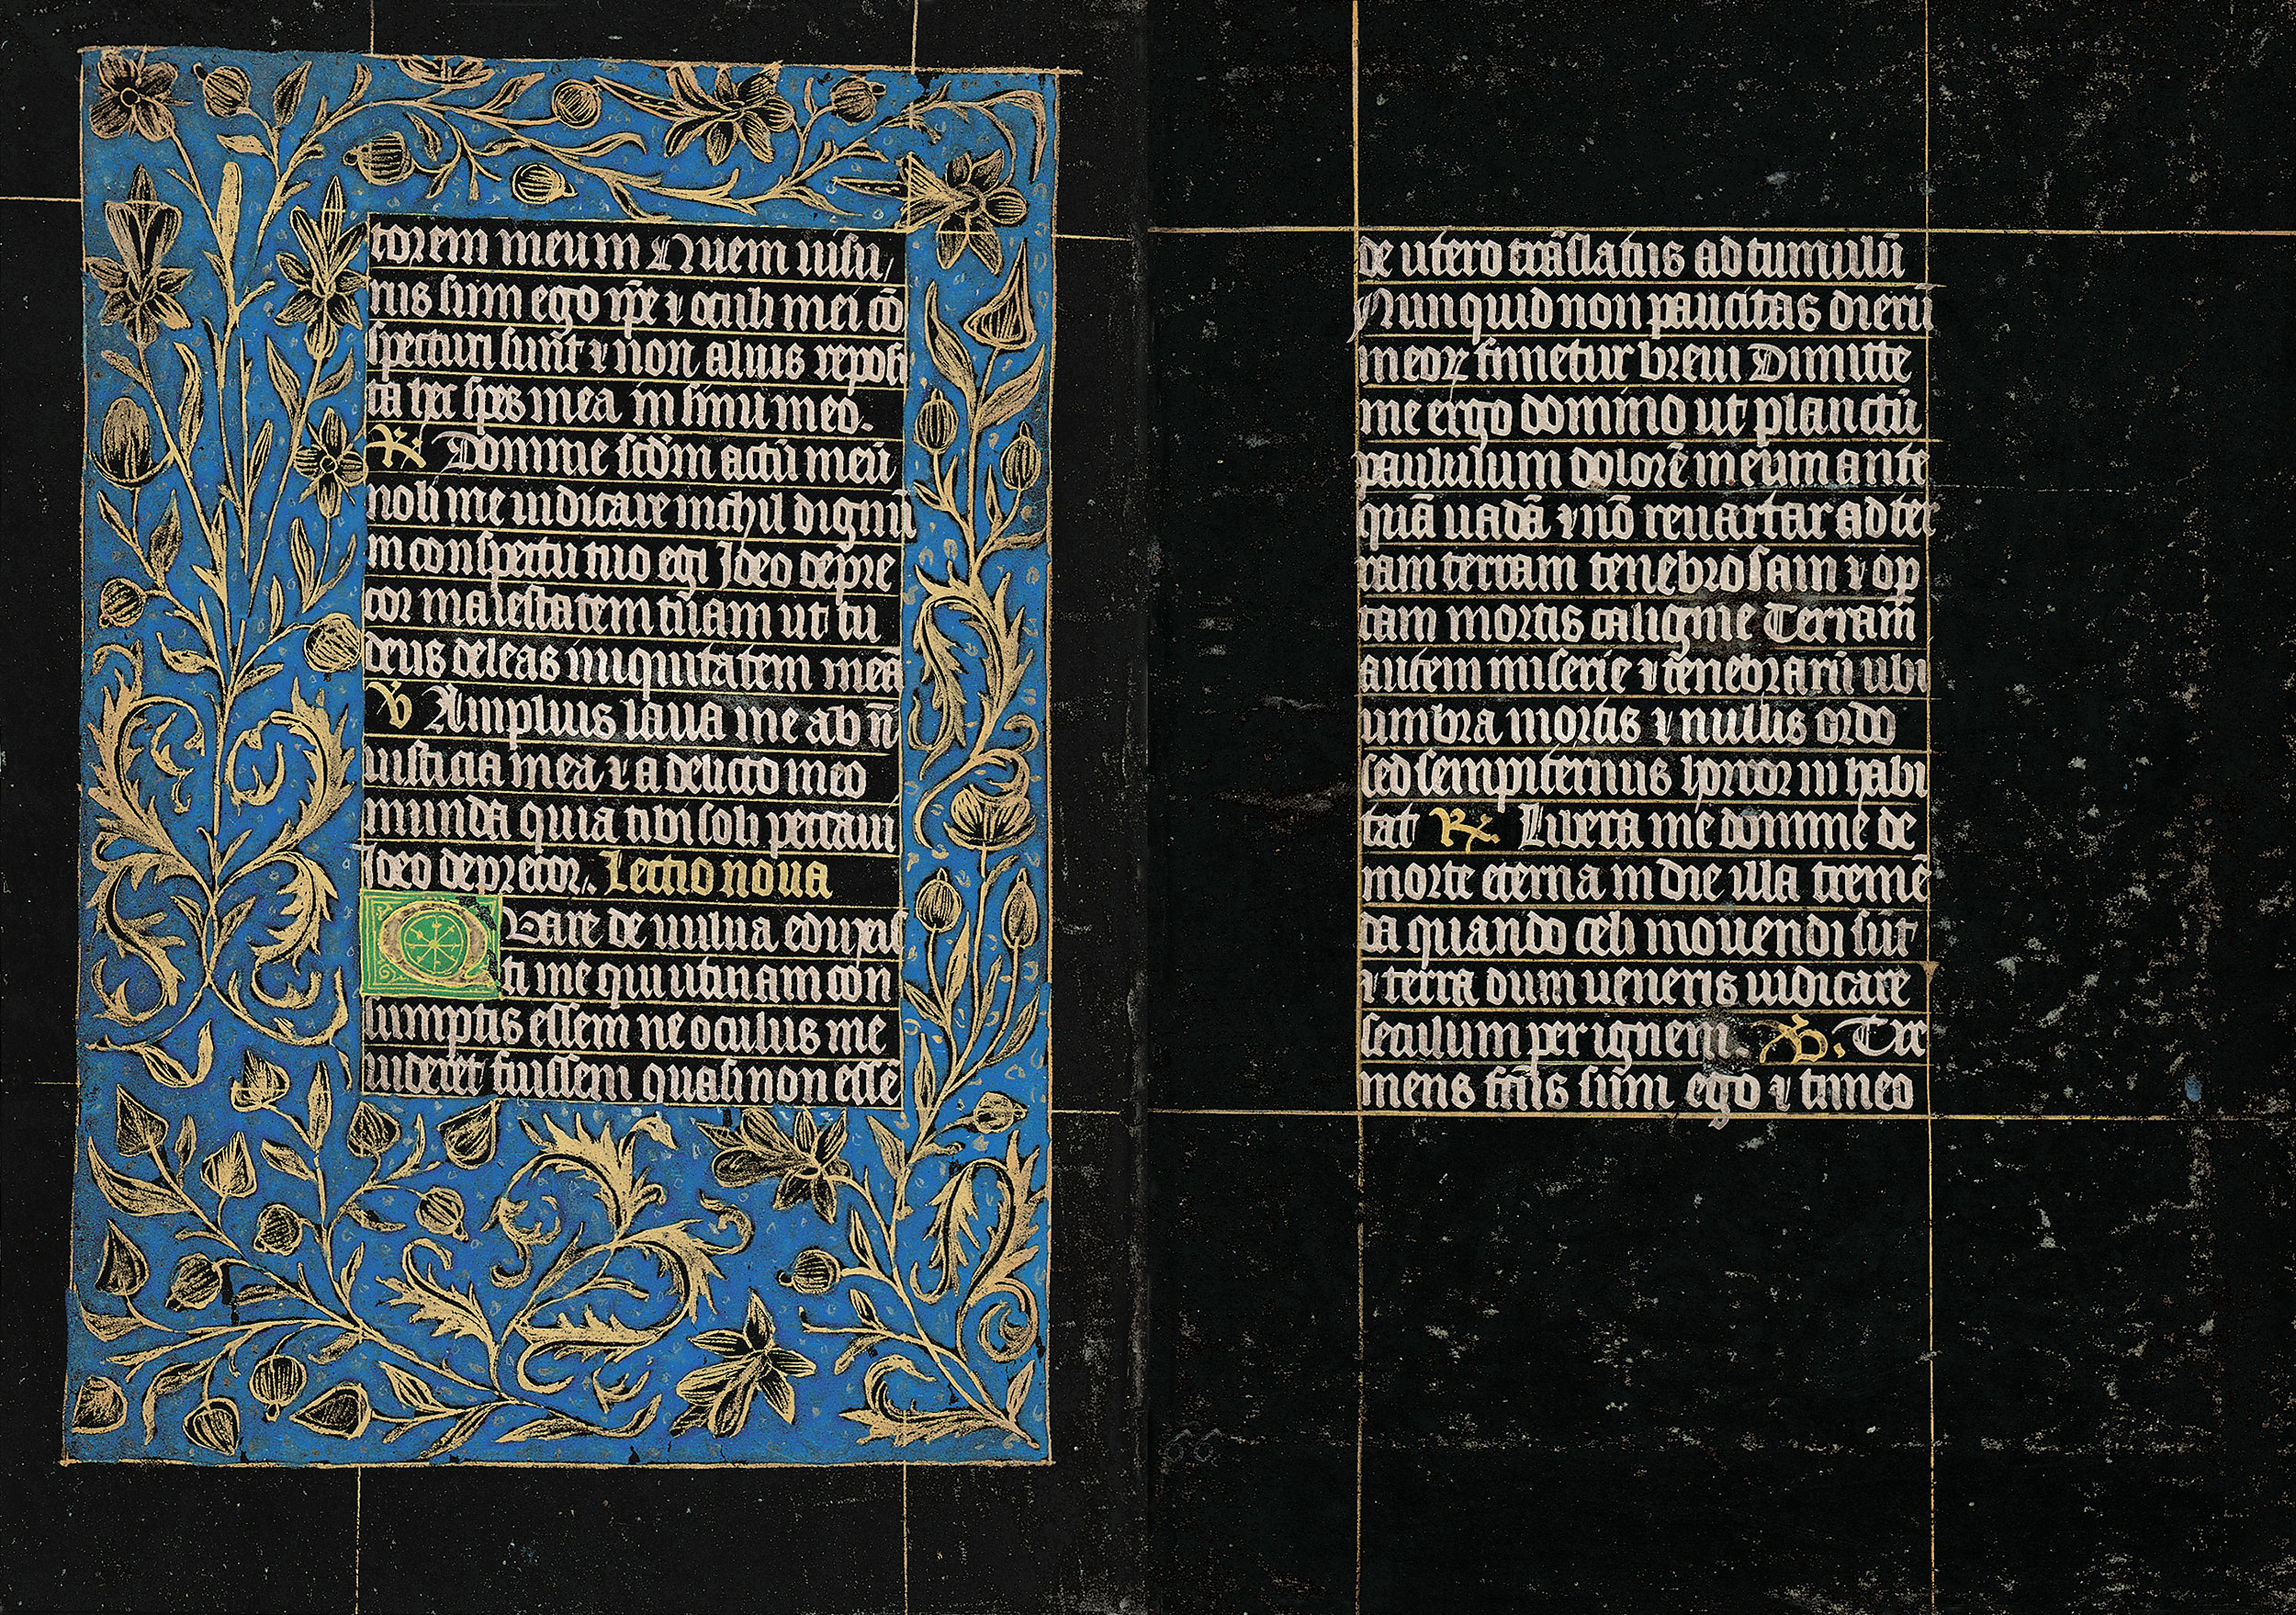 torem meum Quem uisu/
rus sum ego ip̄e ⁊ oculi mei cō
specturi sunt ⁊ non alius reposi
ta hec spes mea in sinu meo.
℟ Domine scd̄m actū meū
noli me iudicare nichil dignū
in conspectu tuo egi Ideo depre
cor maiestatem tuam ut tu
deus deleas iniquitatem meā
℣ Amplius laua me ab in̄
iusticia mea ⁊ a delicto meo
munda quia tibi soli peccaui
Ideo deprecor. Lectio nona
QVare de uulua eduxis
ti me qui utinam con
sumptus essem ne oculus me
uideret fuissem quasi non essē
de utero trāslatus ad tumulū
Nunquid non paucitas dierū
meoꝝ finietur breui Dimitte
me ergo domino ut planctū
paululum dolorē meum ante
quā uadā ⁊ nō reuartar ad ter
ram terram tenebrosam ⁊ op
tam mortis caligine Terram
autem miserie ⁊ tenebrarū ubi
umbra mortis ⁊ nullus ordo
sed sempiternus horror in habi
tat ℟. Libera me domine de
morte eterna in die illa tremē
da quando celi mouendi sūt
⁊ terra dum ueneris iudicare
seculum per ignem. ℣. Tre
mens fcūs sum ego ⁊ timeo